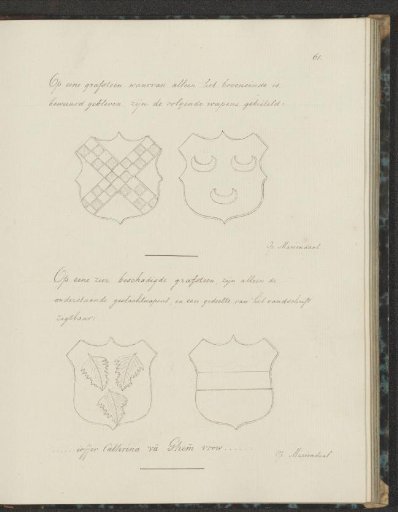 61.
Op eene grafsteen waarvan alleen het boveneinde is
bewaard gebleven, zijn de volgende wapens gebeiteld:
Op eene zeer beschadigde grafsteen zijn alleen de
onderstaande geslachtwapens, en een gedeelte van het randschrift
zigtbaar:
Catterina vā